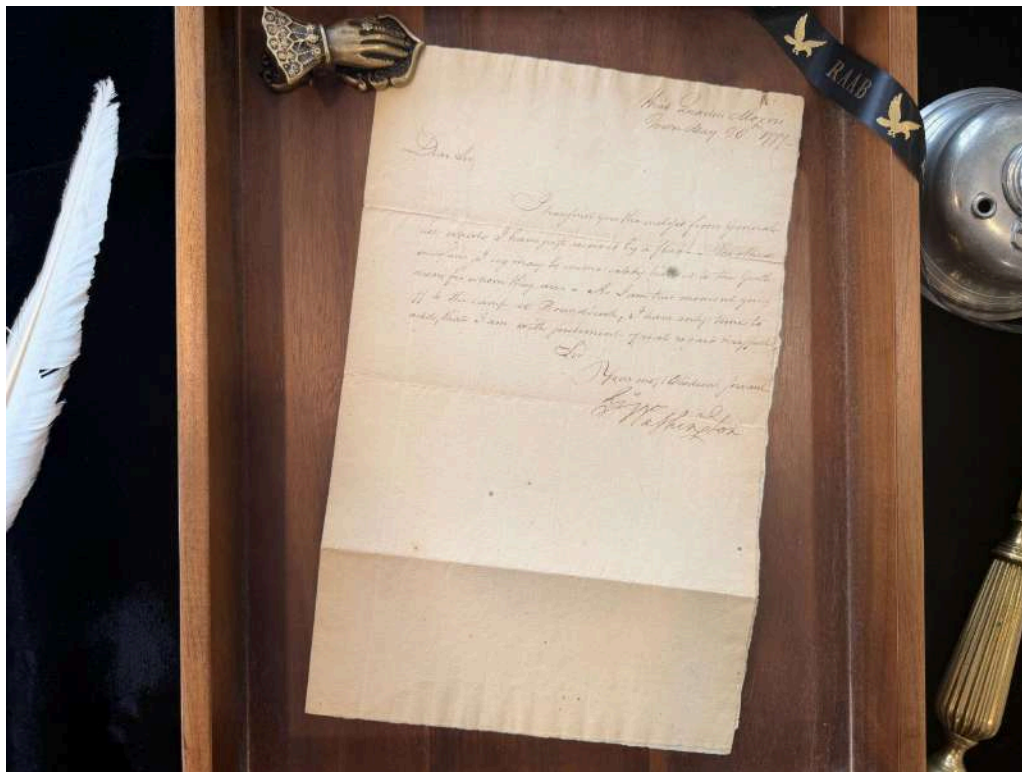 Head Quarters Morris
Town May 20th 1777.
Dear Sir
I transmit you the inclosed from General
I have just received by a flag.
I beg may be conveyed to the Gentle-
men for whom they are. As I am this moment going
off to the camp at Boundbrook, I have only time to
add, that I am with sentiments of great regard
Sir
Your most Obedient Servant
Go Washington
RAAB